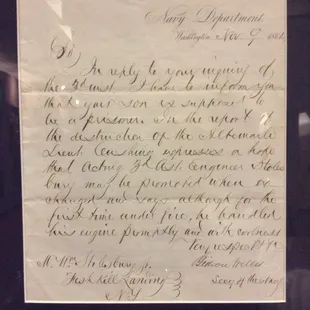 Navy Department
Washington Nov. 9 1864
Sir
In reply to your inquiry of
the 3d inst I have to inform you
that your son is supposed to
be a prisoner. In the report of
the destruction of the Albemarle
Lieut Cushing expresses a hope
that Acting 3d Asst. Engineer Stotes
bury may be promoted when ex
changed and says although for the
first time under fire, he handled
his engine promptly and with coolness
Very respectfly
Gideon Welles
Secy of the Navy
Mr. Wm Stotesbury Jr.
Fresh Kill Landing
N.Y.